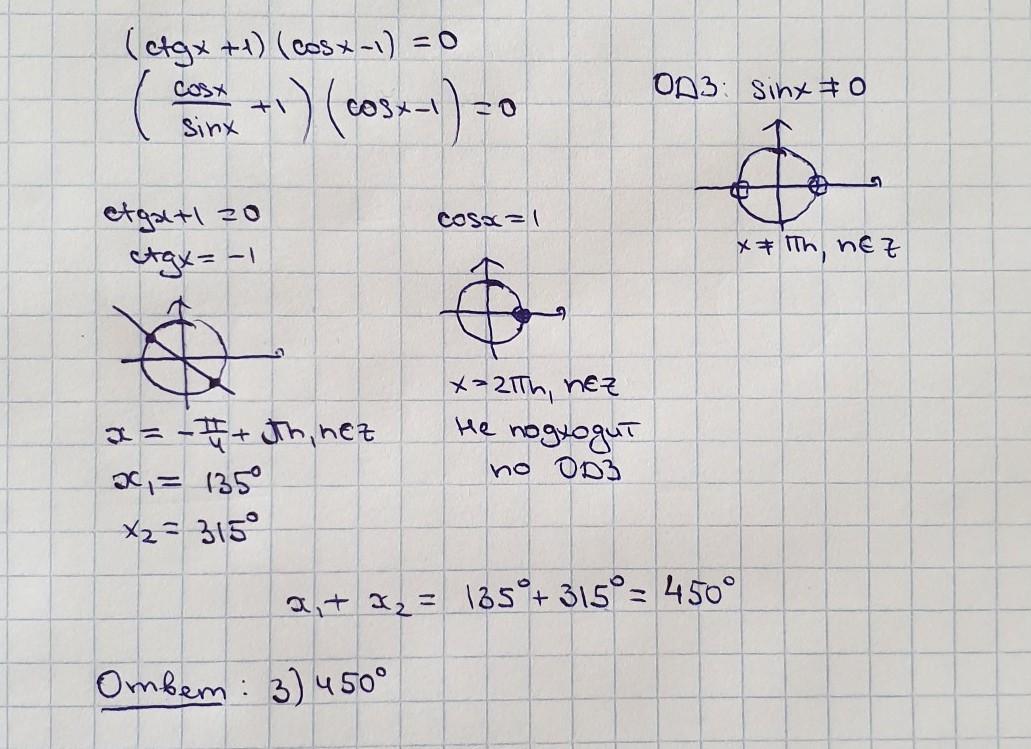 (ctgx +1) (cosx -1) = 0
(cosx/sinx +1) (cosx -1) = 0
ОДЗ: sinx ≠ 0
x ≠ πn, n∈Z
ctgx+1 = 0
ctgx = -1
x = -π/4 + πn, n∈Z
x₁ = 135°
x₂ = 315°
cosx = 1
x = 2πn, n∈Z
не подходит
по ОДЗ
x₁ + x₂ = 135° + 315° = 450°
Ответ: 3) 450°